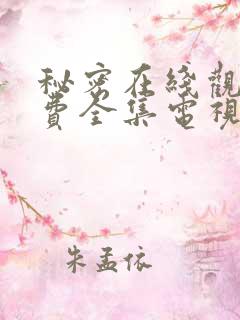 秘密在綫觀
費全集電視
朱孟依